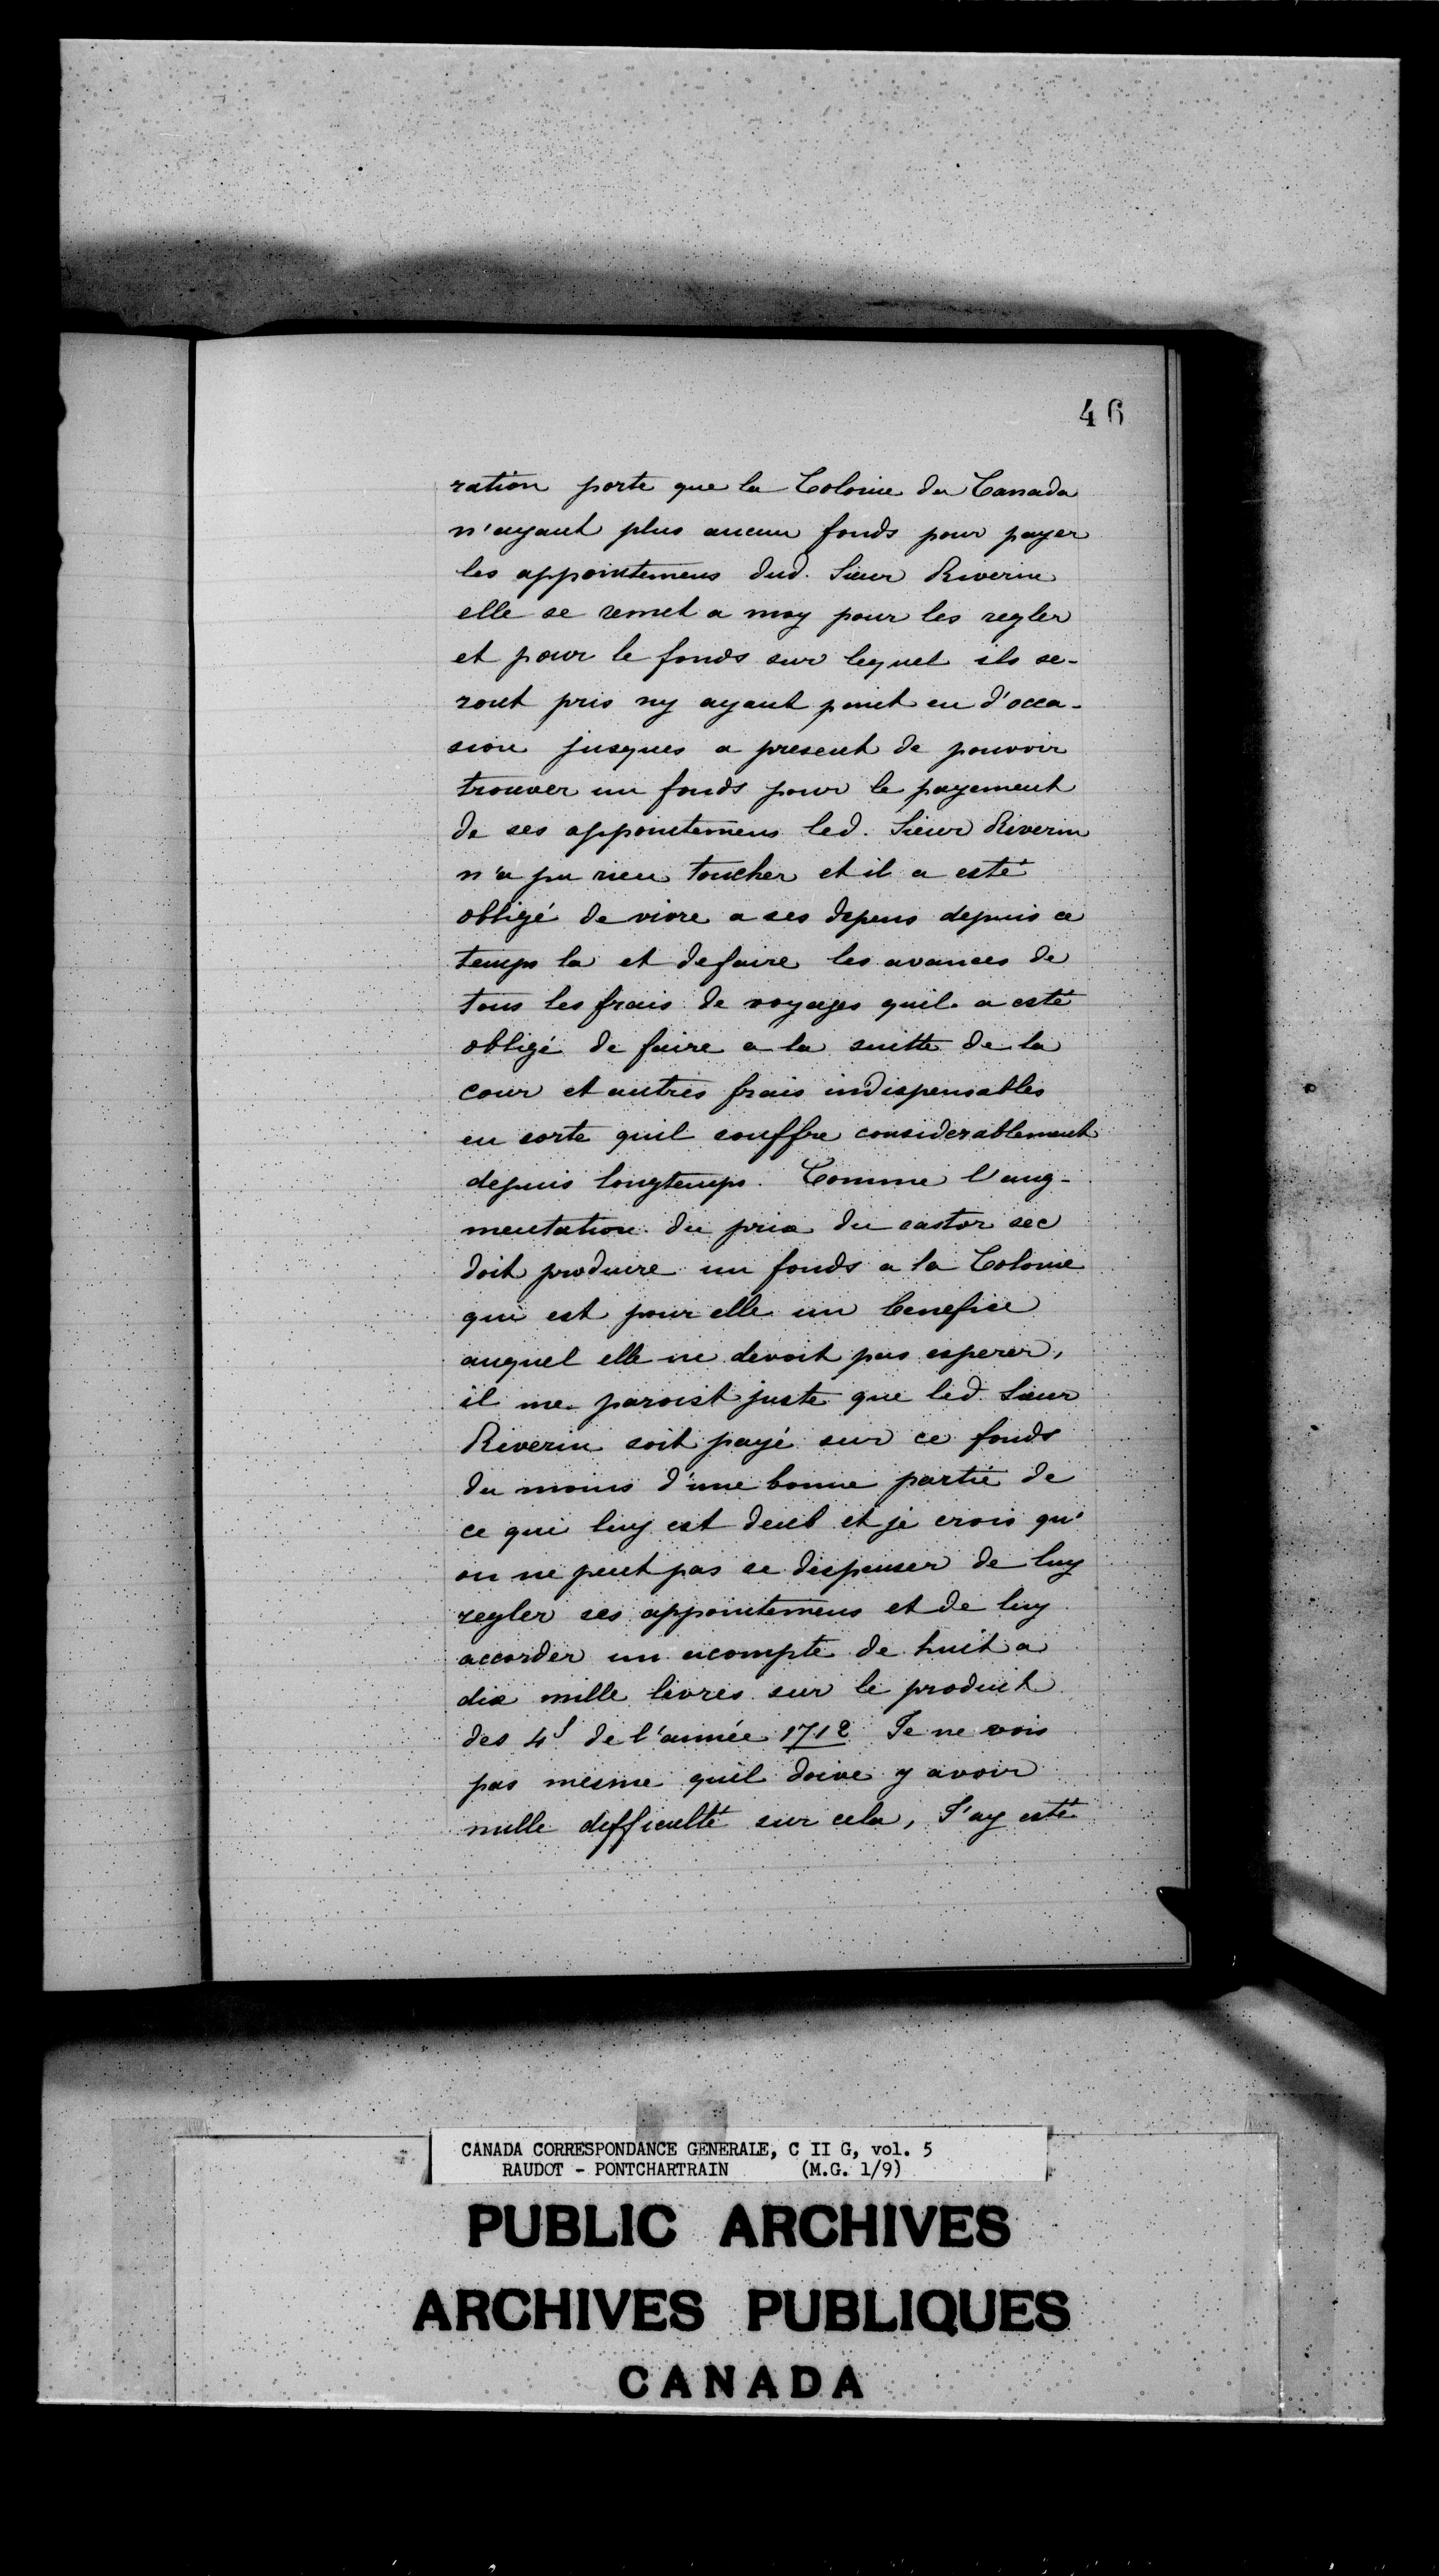 46
ration porte que la Colonie du Canada
n'ayant plus aucun fonds pour payer
les appointemens dud. Sieur Riverin
elle se remet a moy pour les regler
et pour le fonds sur lequel ils se-
ront pris ny ayant point eu d'occa-
sion jusques a present de pouvoir
trouver un fonds pour le payement
de ses appointemens led. Sieur Riverin
n'a pu rien toucher et il a esté
obligé de vivre a ses depens depuis ce
temps la et de faire les avances de
tous les frais de voyages quil a esté
obligé de faire a la suitte de la
cour et autres frais indispensables
en sorte quil souffre considerablement
depuis longtemps. Comme l'aug-
mentation du prix du castor sec
doit produire un fonds a la Colonie
qui est pour elle un benefice
auquel elle ne devoit pas esperer,
il me paroist juste que led. Sieur
Riverin soit payé sur ce fonds
du moins d'une bonne partie de
ce qui luy est deub et je crois qu'
on ne peut pas se dispenser de luy
regler ses appointemens et de luy
accorder un acompte de huit a
dix mille livres sur le produit
des 4s de l'année 1712 Je ne vois
pas mesme quil doive y avoir
nulle difficulté sur cela, J'ay esté
CANADA CORRESPONDANCE GENERALE, C II G, vol. 5
RAUDOT - PONTCHARTRAIN (M.G. 1/9)
PUBLIC ARCHIVES
ARCHIVES PUBLIQUES
CANADA